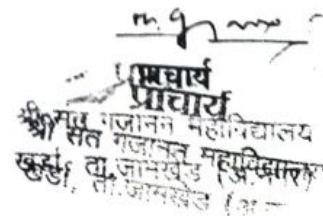 प्राचार्य
प्राचार्य
श्री संत गजानन महाविद्यालय
श्री संत गजानन महाविद्यालय
खर्डा, ता. जामखेड (अ.नगर)
खर्डा, ता. जामखेड (अ.